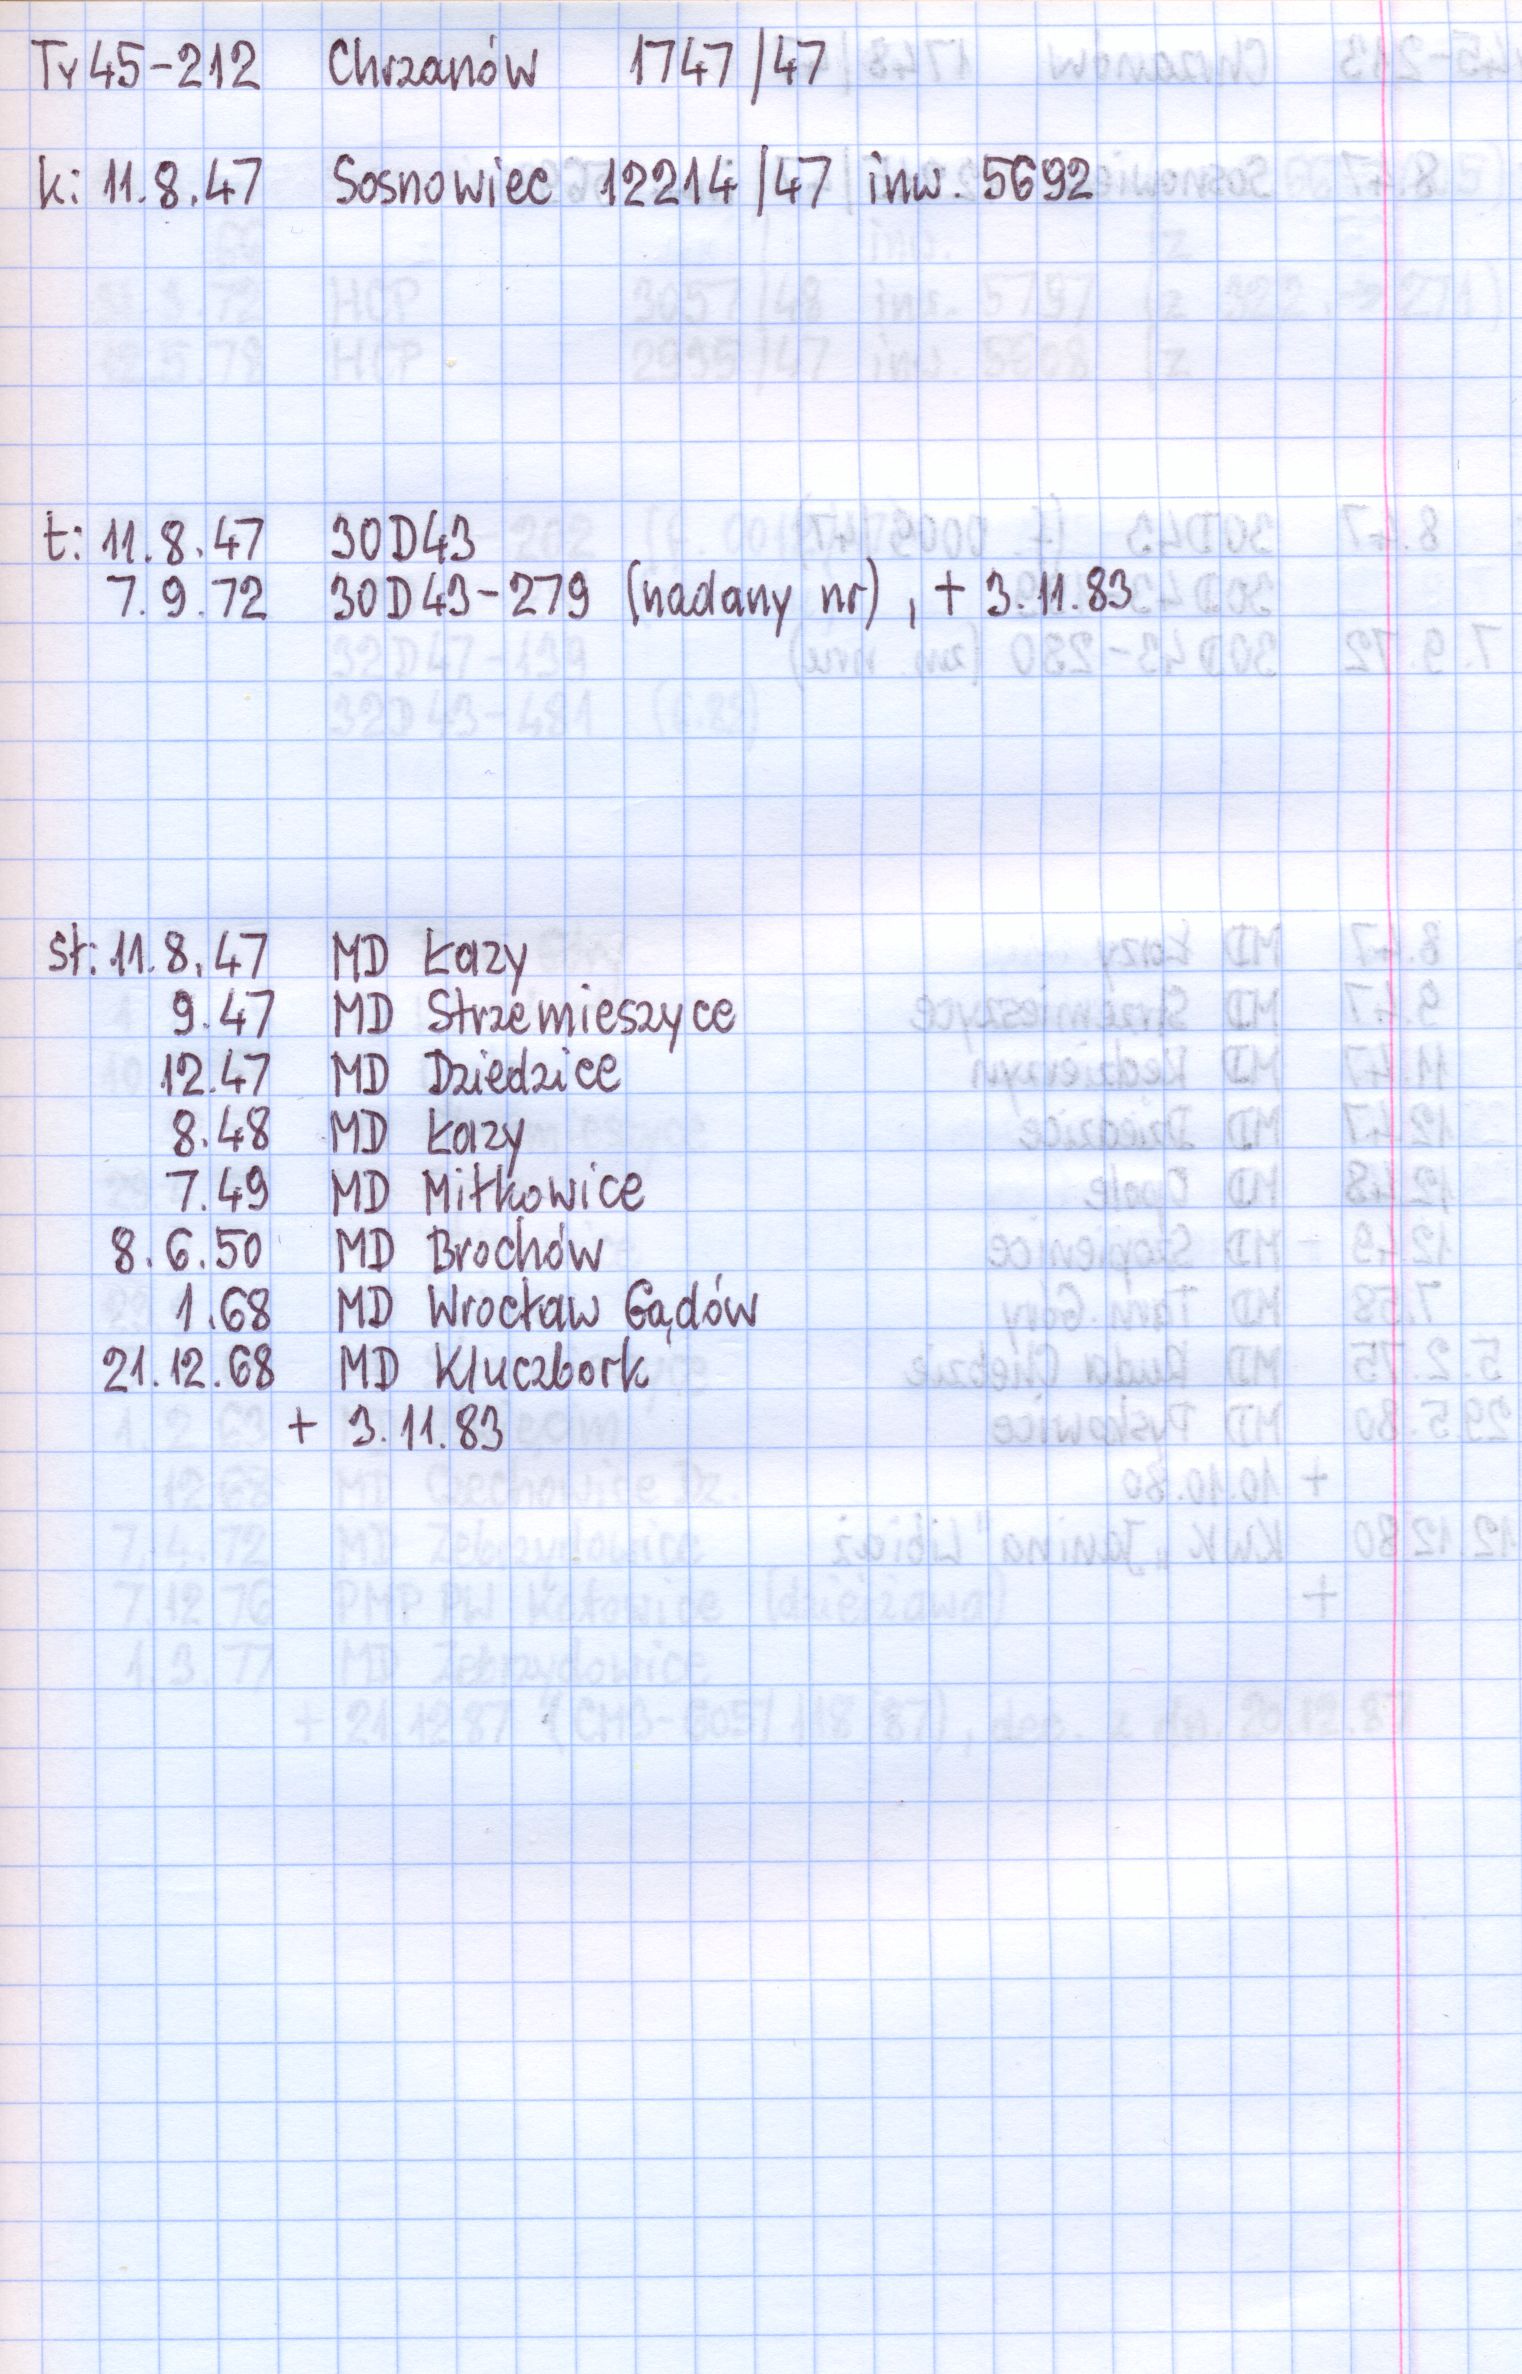 Ty45-212 Chrzanów 1747/47
k: 11.8.47 Sosnowiec 12214/47 inw. 5692
t: 11.8.47 30D43
7.9.72 30D43-279 (nadany nr), + 3.11.83
st: 11.8.47 MD Łazy
9.47 MD Strzemieszyce
12.47 MD Dziedzice
8.48 MD Łazy
7.49 MD Miłkowice
8.6.50 MD Brochów
1.68 MD Wrocław Gądów
21.12.68 MD Kluczbork
+ 3.11.83